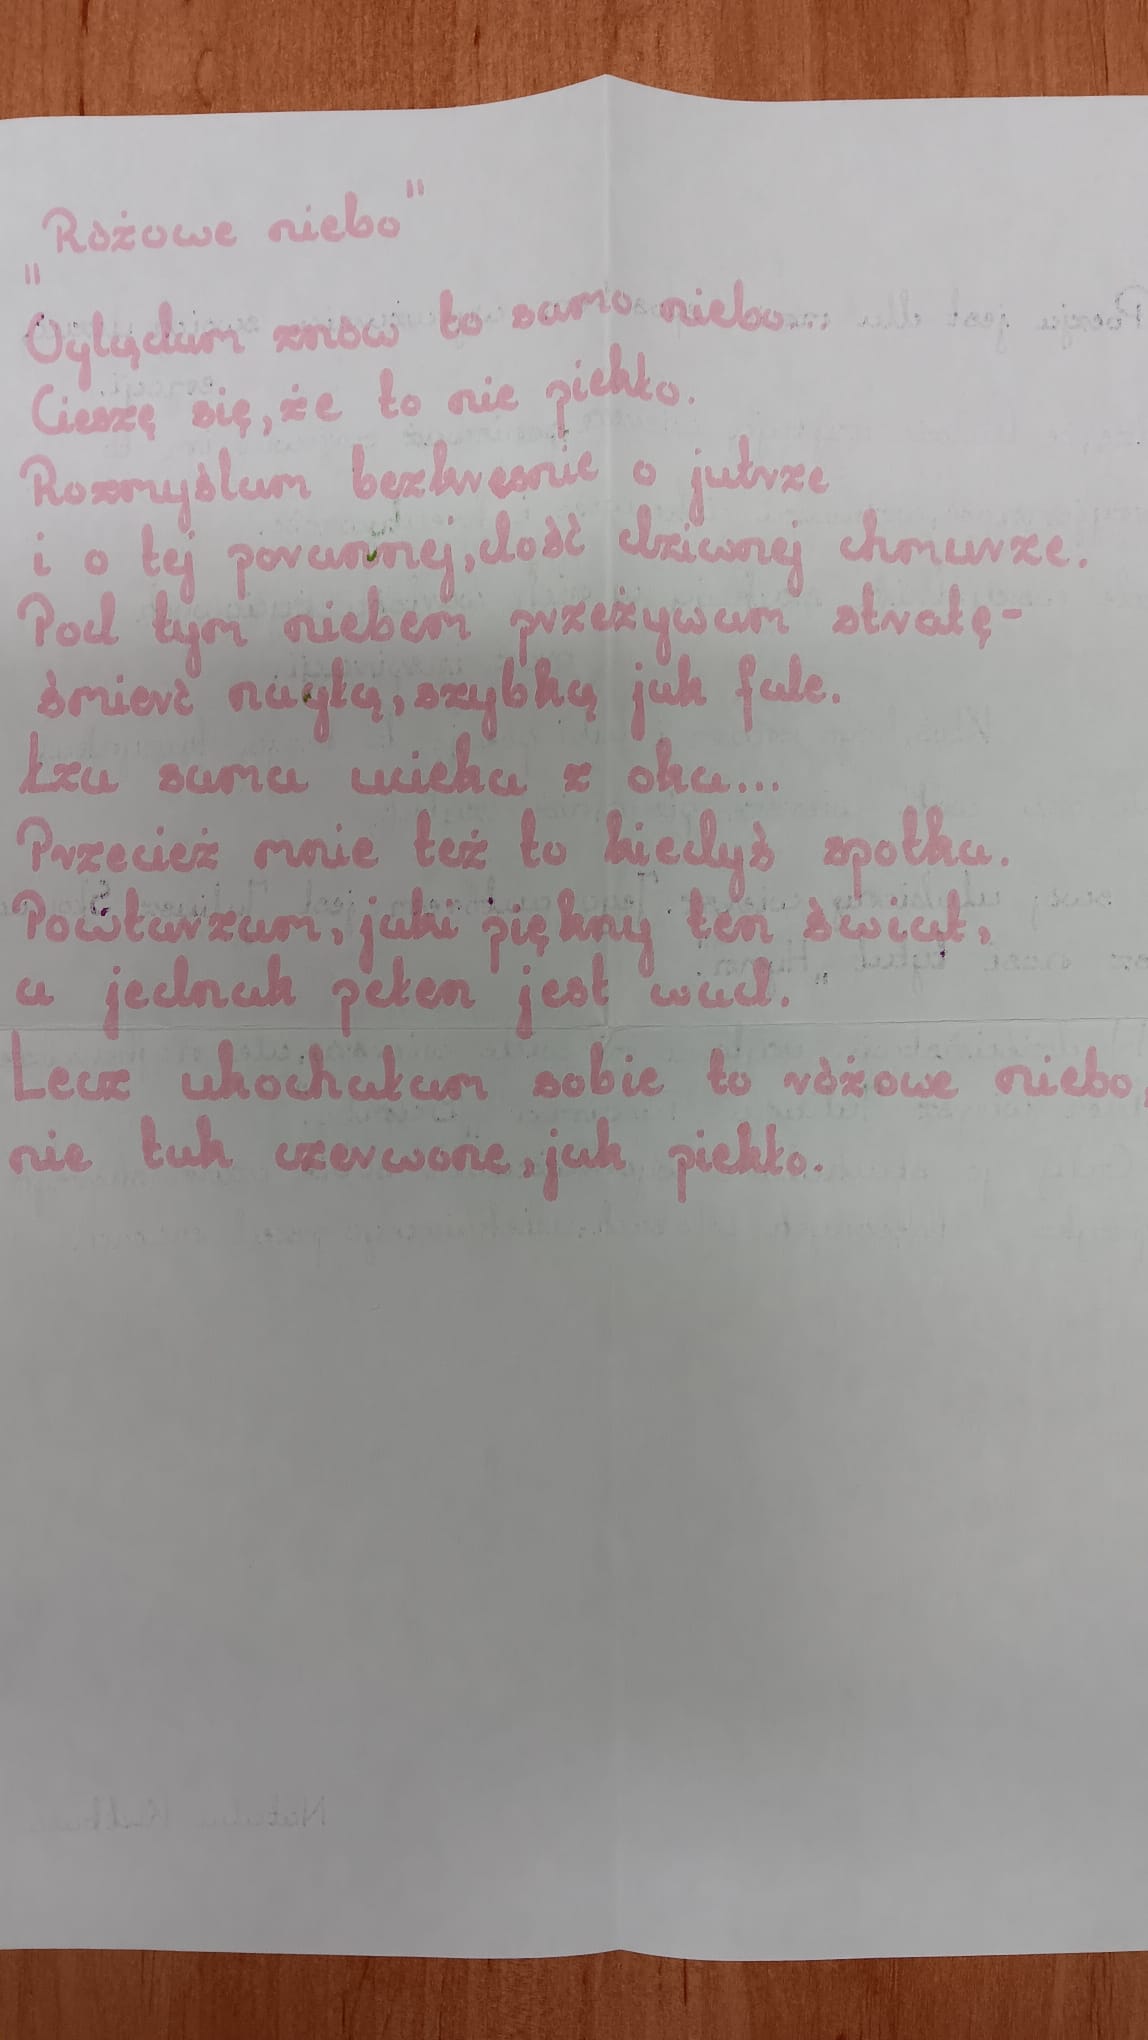 „Różowe niebo"
Oglądam znów to samo niebo.
Cieszę się, że to nie piekło.
Rozmyślam bezkresnie o jutrze
i o tej porannej, dość dziwnej chmurze.
Pod tym niebem przeżywam stratę-
śmierć nagłą, szybką jak fale.
Łza sama ucieka z oka...
Przecież mnie też to kiedyś spotka.
Powtarzam, jaki piękny ten świat,
a jednak pełen jest wad.
Lecz ukochałam sobie to różowe niebo,
nie tak czerwone, jak piekło.